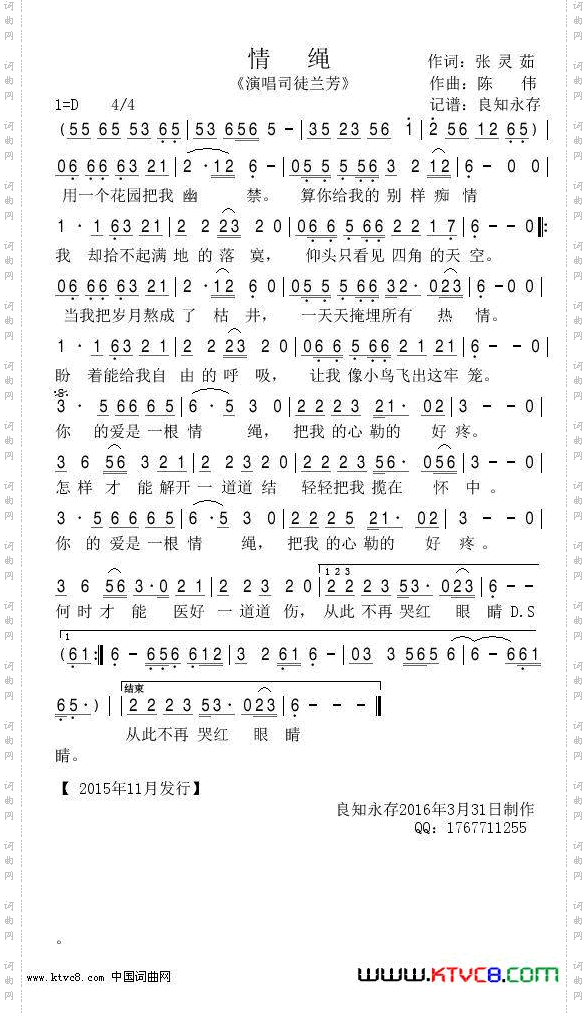 情 绳
《演唱司徒兰芳》
作词：张灵茹
作曲：陈 伟
1=D 4/4
记谱：良知永存
(55 65 53 65 | 53 656 5 - | 35 23 56 1 | 2 56 12 65) |
06 66 63 21 | 2 · 12 6 - | 05 5 5 56 3 2 12 | 6 - 0 0 |
用一个花园把我 幽 禁。 算你给我的 别 样 痴 情
1 · 1 63 21 | 2 2 23 2 0 | 06 6 5 66 2 2 1 7 | 6 - - 0 :
我 却拾不起满 地 的 落 寞， 仰头只看见 四角 的天 空。
06 66 63 21 | 2 · 12 6 0 | 05 5 5 66 32· 023 | 6 - - 0 |
当我把岁月熬成 了 枯 井， 一天天掩埋所有 热 情。
1 · 1 63 2 1 | 2 2 23 2 0 | 06 6 5 66 2 1 21 | 6 - - 0 |
盼 着能给我自 由 的 呼 吸， 让我 像小鸟飞出这牢 笼。
3 · 5 66 6 5 | 6 · 5 3 0 | 2 2 2 3 21· 02 | 3 - - 0 |
你 的爱是 一根 情 绳， 把我 的心 勒的 好 疼。
3 6 56 3 2 1 | 2 2 3 2 0 | 2 2 2 3 56· 056 | 3 - - 0 |
怎 样 才 能 解开 一 道道 结 轻轻把我 揽在 怀 中 。
3 · 5 66 6 5 | 6 · 5 3 0 | 2 2 2 5 21· 02 | 3 - - 0 |
你 的 爱是 一根 情 绳， 把我 的心 勒的 好 疼 。
3 6 56 3·0 2 1 | 2 2 3 2 0 | 1 2 3 2 2 2 3 53· 023 | 6 - -
何 时 才 能 医好 一 道道 伤， 从此 不再 哭红 眼 睛 D.S
1
(61:‖ 6 - 656 612 | 3 2 61 6 - | 03 3 565 6 | 6 - 661
65·) | 结束 2 2 2 3 53· 023 | 6 - - - ‖
从此不再 哭红 眼 睛
睛。
【 2015年11月发行】
良知永存2016年3月31日制作
QQ：1767711255
。
www.ktvc8.com 中国词曲网
www.KTVC8.COM
词曲网